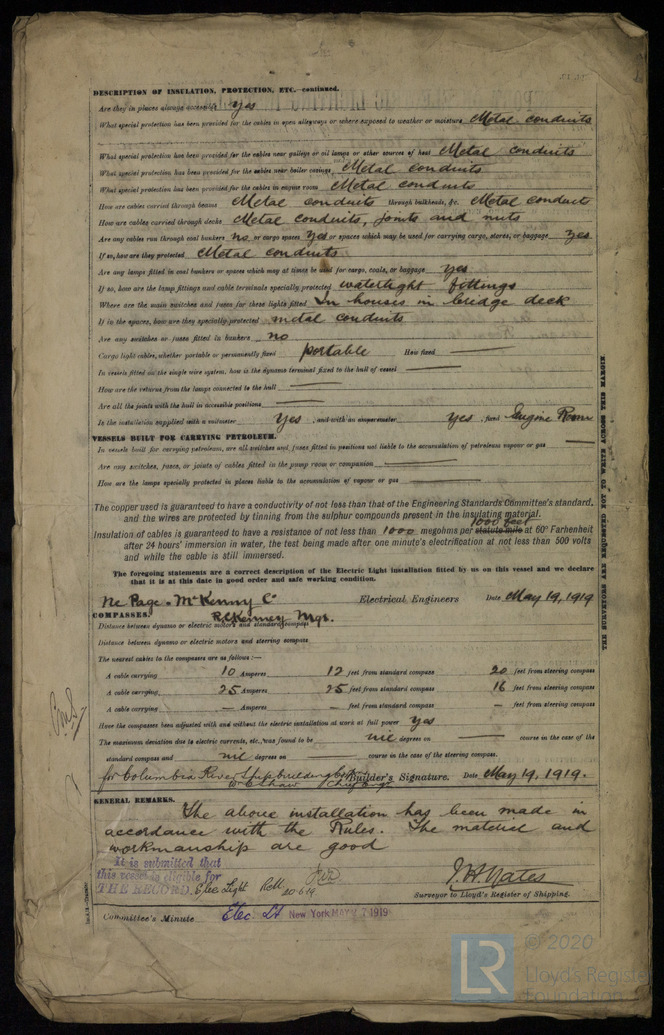 DESCRIPTION OF INSULATION, PROTECTION, ETC.—continued.
Are they in places always accessible yes
What special protection has been provided for the cables in open alleyways or where exposed to weather or moisture Metal conduits
What special protection has been provided for the cables near galleys or oil lamps or other sources of heat Metal conduits
What special protection has been provided for the cables near boiler casings Metal conduits
What special protection has been provided for the cables in engine room Metal conduits
How are cables carried through beams Metal conduits through bulkheads, &c. Metal conduit
How are cables carried through decks Metal conduits, joints and nuts
Are any cables run through coal bunkers no or cargo spaces yes or spaces which may be used for carrying cargo, stores, or baggage yes
If so, how are they protected Metal conduits
Are any lamps fitted in coal bunkers or spaces which may at times be used for cargo, coals, or baggage yes
If so, how are the lamp fittings and cable terminals specially protected watertight fittings
Where are the main switches and fuses for these lights fitted In houses in bridge deck
If in the spaces, how are they specially protected metal conduits
Are any switches or fuses fitted in bunkers no
Cargo light cables, whether portable or permanently fixed portable How fixed
In vessels fitted on the single wire system, how is the dynamo terminal fixed to the hull of vessel
How are the returns from the lamps connected to the hull
Are all the joints with the hull in accessible positions
Is the installation supplied with a voltmeter yes, and with an amperemeter yes, fixed Engine Room
VESSELS BUILT FOR CARRYING PETROLEUM.
In vessels built for carrying petroleum, are all switches and fuses fitted in positions not liable to the accumulation of petroleum vapour or gas
Are any switches, fuses, or joints of cables fitted in the pump room or companion
How are the lamps specially protected in places liable to the accumulation of vapour or gas
The copper used is guaranteed to have a conductivity of not less than that of the Engineering Standards Committee's standard,
and the wires are protected by tinning from the sulphur compounds present in the insulating material.
1000 feet
Insulation of cables is guaranteed to have a resistance of not less than 1000 megohms per statute mile at 60° Farhenheit
after 24 hours' immersion in water, the test being made after one minute's electrification at not less than 500 volts
and while the cable is still immersed.
The foregoing statements are a correct description of the Electric Light installation fitted by us on this vessel and we declare
that it is at this date in good order and safe working condition.
Ne Page - McKenny Co Electrical Engineers Date May 19, 1919
COMPASSES. Mgr.
Distance between dynamo or electric motors and standard compass
Distance between dynamo or electric motors and steering compass
The nearest cables to the compasses are as follows:—
A cable carrying 10 Amperes 12 feet from standard compass 20 feet from steering compass
A cable carrying 25 Amperes 25 feet from standard compass 16 feet from steering compass
A cable carrying — Amperes — feet from standard compass — feet from steering compass
Have the compasses been adjusted with and without the electric installation at work at full power yes
The maximum deviation due to electric currents, etc., was found to be nil degrees on course in the case of the
standard compass and nil degrees on course in the case of the steering compass.
for Columbia River Shipbuilding Builder's Signature. Date May 19, 1919.
GENERAL REMARKS.
The above installation has been made in
accordance with the Rules. The material and
workmanship are good
It is submitted that
this vessel is eligible for
THE RECORD. Elec Light 20-6-19
J. H. Yates
Surveyor to Lloyd's Register of Shipping.
Committee's Minute Elec. Lt New York MAY 27 1919
THE SURVEYORS ARE REQUESTED NOT TO WRITE ACROSS THIS MARGIN
LR
© 2020
Lloyd's Register
Foundation